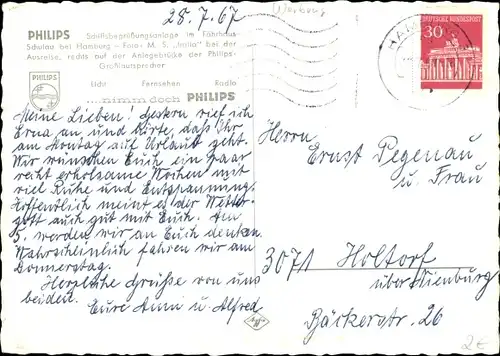 28.7.67
(Werbung)
PHILIPS Schiffsbegrüßungsanlage im Fährhaus
Schulau bei Hamburg - Foto: M. S. „Italia" bei der
Ausreise, rechts auf der Anlegebrücke der Philips-
Großlautsprecher
PHILIPS
Licht Fernsehen Radio
...nimm doch PHILIPS
DEUTSCHE BUNDESPOST
30
HAM
Meine Lieben! Gestern rief ich
Erna an, und hörte, daß Ihr
am Montag auf Urlaub geht.
Wir wünschen Euch ein paar
recht erholsame Wochen mit
viel Ruhe und Entspannung.
Hoffentlich meint es der Wetter-
gott auch gut mit Euch. Am
5. werden wir an Euch denken.
Wahrscheinlich fahren wir am
Donnerstag.
Herzliche Grüße von uns
beiden.
Eure Anni u. Alfred
Herrn
Ernst Pegenau
u. Frau
3071 Holtorf
über Nienburg
Bäckerstr. 26
2€